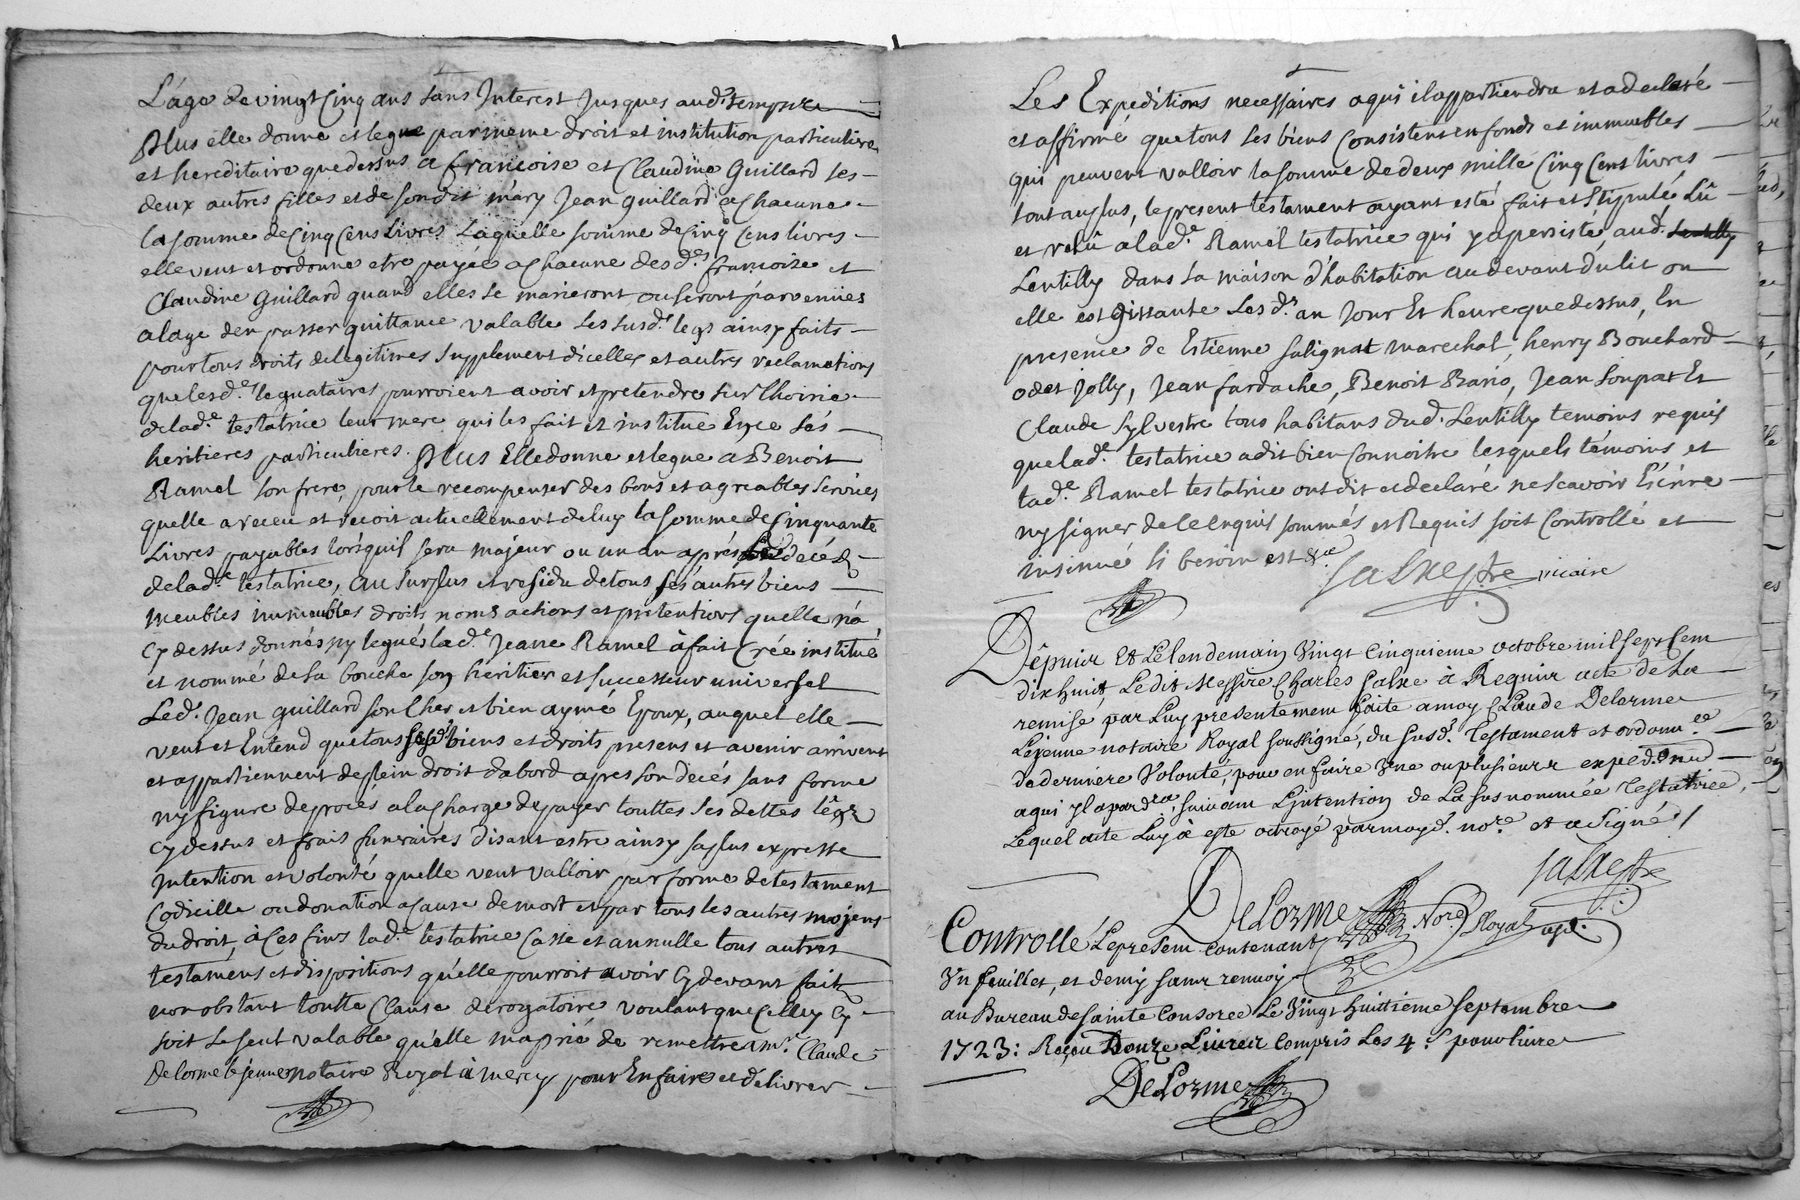 L'age de vingt Cinq ans sans Interest Jusques aud. temps
Plus elle donne et legue par meme droit et institution particuliere
et hereditaire que dessus a francoise et Claudine Guillard ses
deux autres filles et de sondit mary Jean guillard a chacune
la somme de Cinq Cens Livres Laquelle somme de Cinq Cens livres
elle veut et ordonne etre payée a chacune des d.es francoise et
Claudine Guillard quand elles se marieront ou seront parvenues
a lage den passer quittance valable Les susd.s legs ainsy faits
pour tous droits de legitimes supplement dicelles et autres reclamations
que lesd.es leguataires pourroient avoir et pretendre sur lhoirie
de lad.e testatrice leur mere qui les fait et institue En ce Ses
heritieres particulieres. Plus Elle donne et legue a Benoit
Ramel son frere, pour le recompenser des bons et agreables services
quelle a receu et recoit actuellement de luy la somme de Cinquante
Livres payables lorsquil sera majeur ou un an aprés decéd
de lad.e testatrice, au surplus et residu de tous ses autres biens
meubles immeubles droits noms actions et pretentions quelle n'a
Cy dessus donnés ny legués lad.e Jeane Ramel à fait Crée institué
et nommé de sa bouche son héritier et successeur universel
Led. Jean guillard son Cher et bien aymé Epoux, auquel elle
veut et Entend que tous sesd. biens et droits presens et avenir arrivent
et appartiennent de plein droit dabord apres son decés sans forme
ny figure de procés a la charge de payer touttes ses dettes légs
cy dessus et frais funeraires disant estre ainsy sa plus expresse
Intention et volonté quelle veut valloir par forme de testament
Codicille ou donation a cause de mort et par tous les autres mojens
du droit, à Ces fins lad.e testatrice Casse et annulle tous autres
testamens et dispositions qu'elle pourroit avoir Cy devant fait
nonobstant toutte Clause derogatoire voulant que Celluy Cy
soit Le seul valable qu'elle m'a prié de remettre a m.r Claude
Delorme le jeune notaire Royal à mercy pour En faire et délivrer
Les Expeditions necessaires a qui il appartiendra et a declaré
et affirmé que tous ses biens Consistent en fonds et immeubles
qui peuvent valloir la somme de deux mille Cinq Cens livres
tout au plus, le present testament ayant esté fait et Stipulé Lû
et relû a lad.e Ramel testatrice qui y a persisté, aud. Lentilly
Lentilly dans sa maison d'habitation au devant du lit ou
elle est gissante Les d.s an Jour Et heure que dessus, En
presence de Estienne Salignat marechal, henry Bouchard
odet Jolly, Jean fardache, Benoit Rario, Jean Soupat Et
Claude Sylvestre tous habitans dud. Lentilly temoins requis
que lad.e testatrice a dit bien Connoitre lesquels témoins et
lad.e Ramel testatrice ont dit et declaré ne scavoir Ecrire
ny signer de Ce Enquis sommés et Requis soit Controllé et
insinué si besoin est &.a
vicaire
Dépuis Et Le lendemain Vingt Cinquieme octobre mil sept Cem
dix huit, Ledit Messire Charles à Requir acte de La
remise par Luy presentement faite a moy Claude Delorme
Le jeune notaire Royal soussigné, du susd. Testament et ordonn.ce
de derniere Volonté, pour en faire Vne ou plusieurs exped.on
a qui Il apard.ra, suivam L'intention de La susnommée Testatrice,
Lequel acte Luy à esté octroyé par moy d. no.re et a Signé /
Delorme No.re Royal
Controllé Le presem Contenant
Vn feuillet, et demy sans renvoy
au Bureau de Sainte Consorce Le Vingt huittieme Septembre
1723: Reçeu Douze Livres Compris Les 4. s pour livre
Delorme